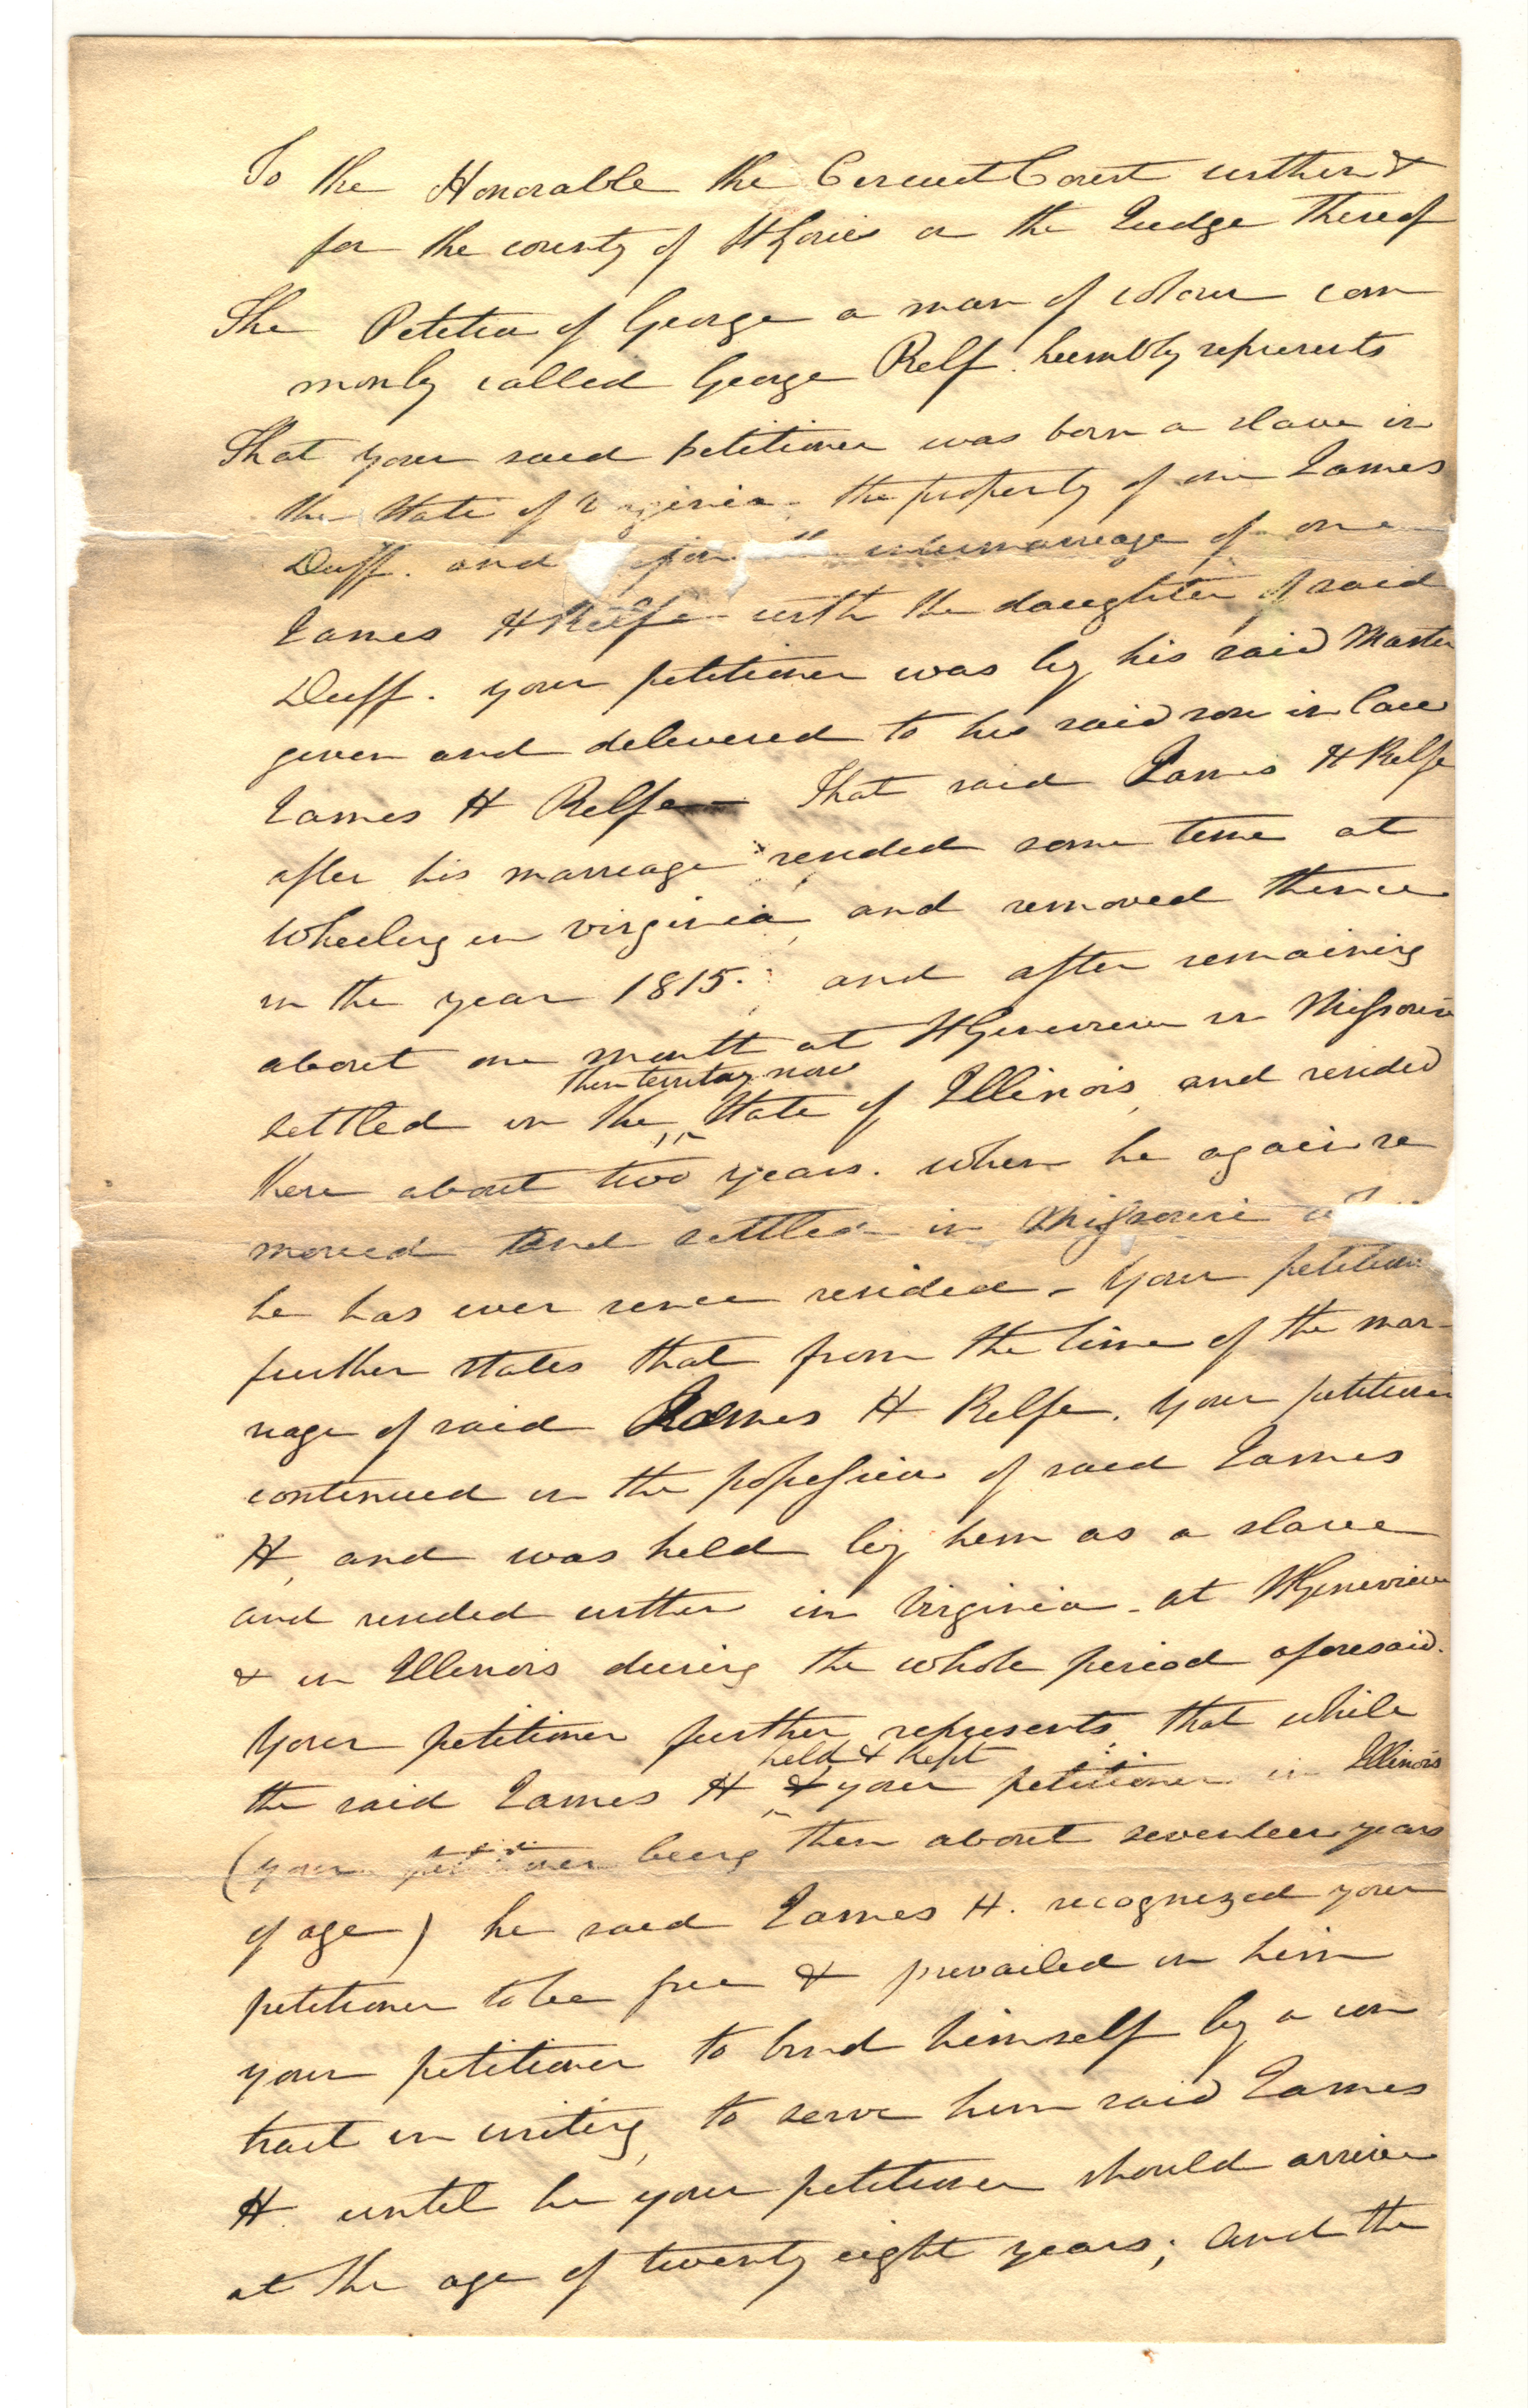 To the Honorable the Circuit Court within &
for the county of St Louis or the Judge thereof
The Petition of George a man of colour com
monly called George Relf. humbly represents
That your said petitioner was born a slave in
the State of Virginia. the property of one James
Duff. and intermarriage of one
James H Relfe with the daughter of said
Duff. your petitioner was by his said Master
given and delivered to his said son in law
James H Relfe That said James H Relfe
after his marriage resided some time at
Wheeling in virginia, and removed thence
in the year 1815. and after remaining
about one month at St Genevieve in Missouri
then territory now
settled in the State of Illinois, and resided
there about two years. when he again re
moved and settled in Missouri
he has ever since resided - Your petitioner
further states that from the time of the mar-
riage of said James H Relfe. your petitioner
continued in the possession of said James
H, and was held by him as a slave
and resided with him in Virginia - at St Genevieve
& in Illinois during the whole period aforesaid.
Your petitioner further represents that while
held & kept
the said James H & your petitioner in Illinois
(your petitioner being then about seventeen years
of age) he said James H. recognized your
petitioner to be free & prevailed on him
your petitioner to bind himself by a con
tract in writing, to serve him said James
H. until he your petitioner should arrive
at the age of twenty eight years; and the